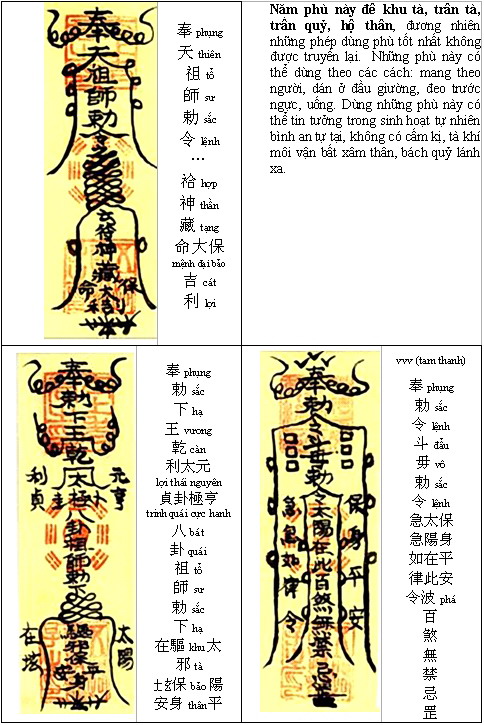 奉天祖師勅令
符神藏
命
保
大吉利
奉 phụng
天 thiên
祖 tổ
師 sư
勅 sắc
令 lệnh
…
袷 hợp
神 thần
藏 tạng
命大保
mệnh đại bảo
吉 cát
利 lợi
Năm phù này để khu tà, trấn tà,
trấn quỷ, hộ thân, đương nhiên
những phép dùng phù tốt nhất không
được truyền lại. Những phù này có
thể dùng theo các cách: mang theo
người, dán ở đầu giường, đeo trước
ngực, uống. Dùng những phù này có
thể tin tưởng trong sinh hoạt tự nhiên
bình an tự tại, không có cấm kị, tà khí
môi vận bất xâm thân, bách quỷ lánh
xa.
奉勅下王乾
元亨
利貞
太極
八卦祖師勅下
太陽
在
奉 phụng
勅 sắc
下 hạ
王 vương
乾 càn
利太元
lợi thái nguyên
貞卦極亨
trinh quái cực hanh
八 bát
卦 quái
祖 tổ
師 sư
勅 sắc
下 hạ
在驅 khu 太
邪 tà
保 bảo 陽
安身 thân 平
奉勅令斗毋勅令太陽在此百煞無禁忌罡
保身平安
急急如律令
vvv (tam thanh)
奉 phụng
勅 sắc
令 lệnh
斗 đẩu
毋 vô
勅 sắc
令 lệnh
急太保
急陽身
如在平
律此安
令波 phá
百
煞
無
禁
忌
罡